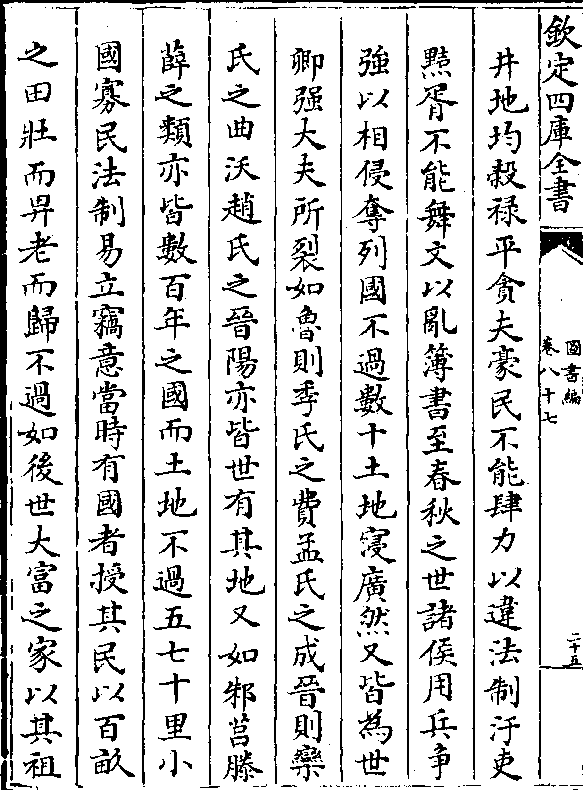 欽定四庫全書
圖書編
卷八十七
二十五
井地均穀禄平貪夫豪民不能肆力以違法制汙吏
黠胥不能舞文以亂簿書至春秋之世諸侯用兵爭
強以相侵奪列國不過數十土地寖廣然又皆為世
卿强大夫所裂如魯則季氏之費孟氏之成晉則欒
氏之曲沃趙氏之晉陽亦皆世有其地又如邾莒滕
薛之類亦皆數百年之國而土地不過五七十里小
國寡民法制易立竊意當時有國者授其民以百畝
之田壯而畀老而歸不過如後世大富之家以其祖